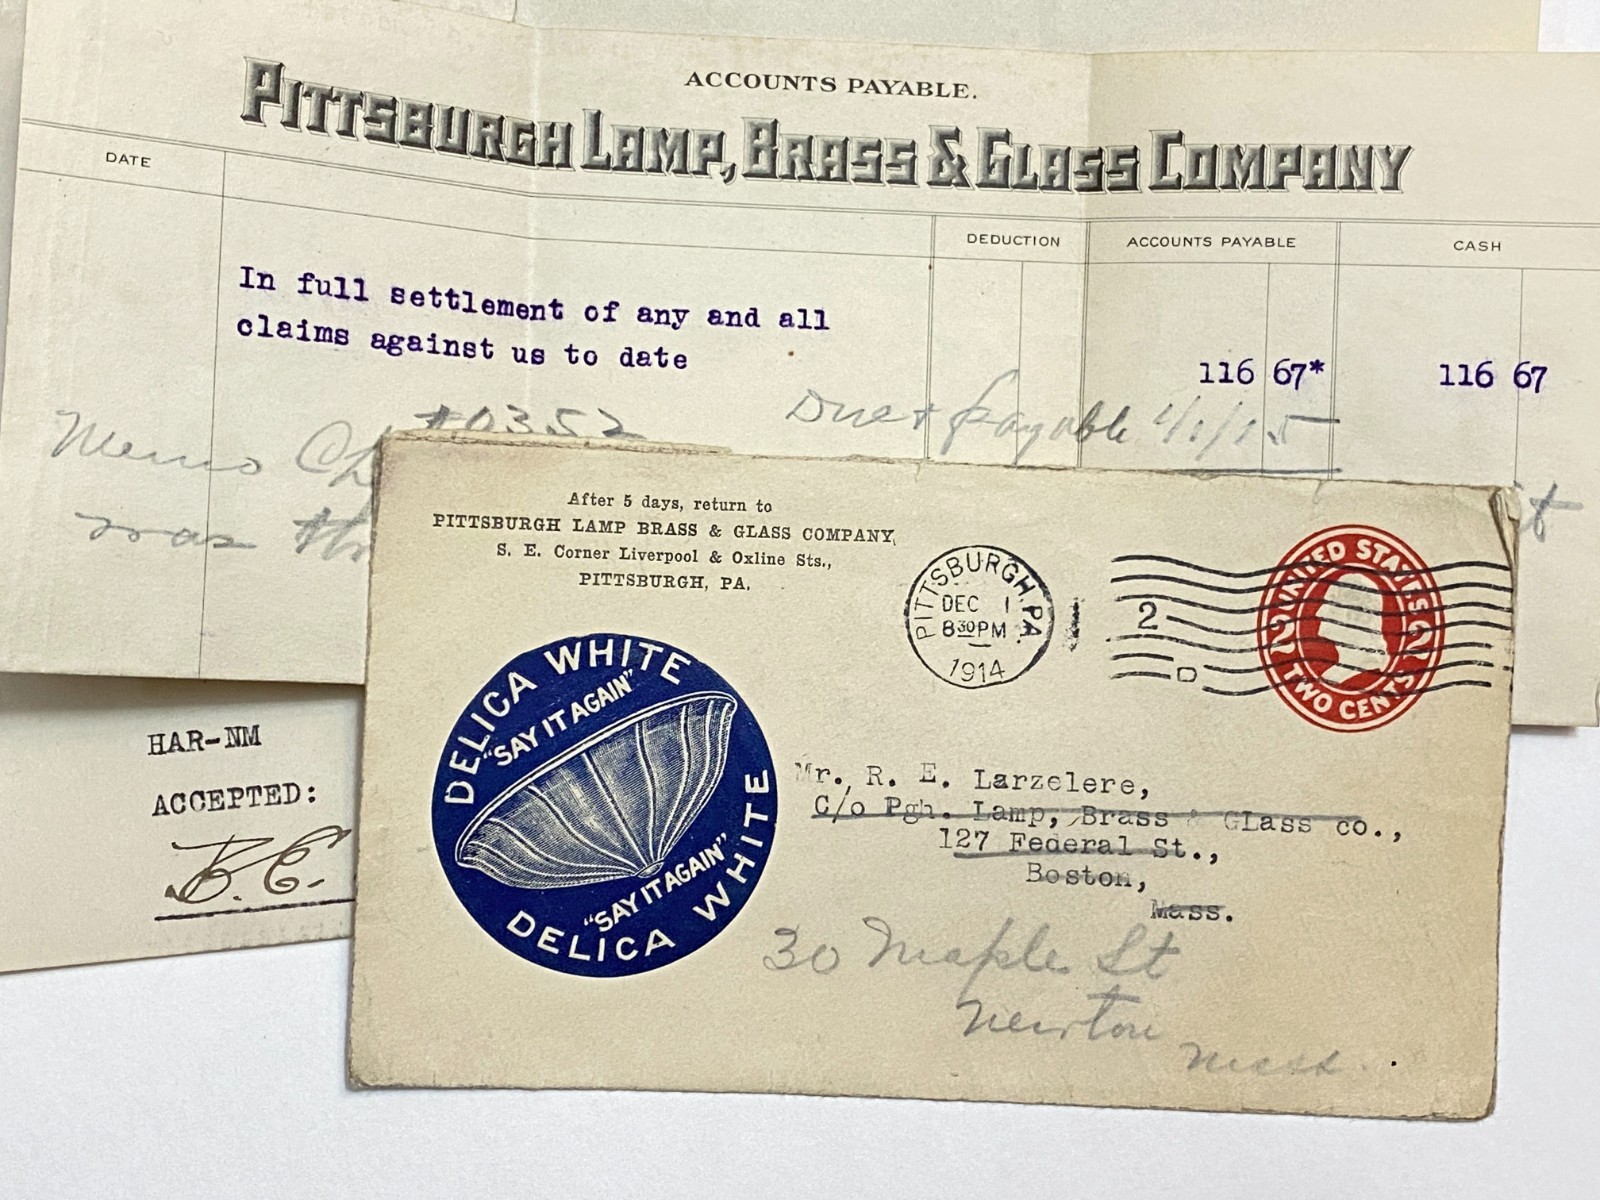 ACCOUNTS PAYABLE.
PITTSBURGH LAMP, BRASS & GLASS COMPANY
DATE
DEDUCTION
ACCOUNTS PAYABLE
CASH
In full settlement of any and all
claims against us to date
116 67*
116 67
Due & payable 1/1/15
Memo Ch #0352
was
HAR-NM
ACCEPTED:
B. E.
After 5 days, return to
PITTSBURGH LAMP BRASS & GLASS COMPANY,
S. E. Corner Liverpool & Oxline Sts.,
PITTSBURGH, PA.
PITTSBURGH, PA.
DEC 1
8 30 PM
1914
2
D
UNITED STATES
2 2
TWO CENTS
DELICA WHITE
"SAY IT AGAIN"
"SAY IT AGAIN"
DELICA WHITE
Mr. R. E. Larzelere,
C/o Pgh. Lamp, Brass & GLass co.,
127 Federal St.,
Boston,
Mass.
30 Maple St
Newton
Mass.